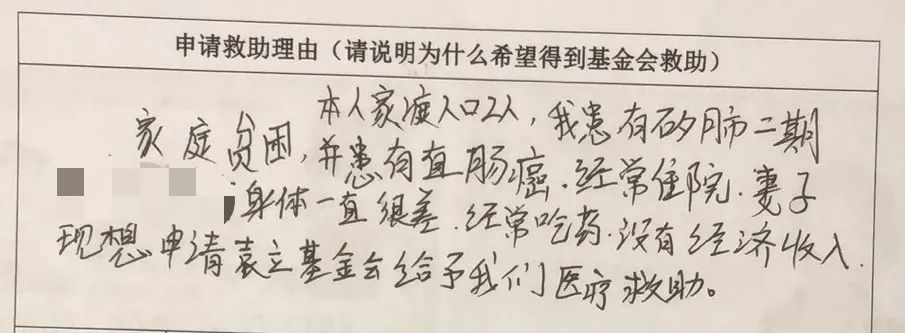 申请救助理由（请说明为什么希望得到基金会救助）
本人家庭人口2人，我患有矽肺二期
家庭贫困，并患有直肠癌.经常住院.妻子
，身体一直很差.经常吃药.没有经济收入.
现想申请袁立基金会给予我们医疗救助。